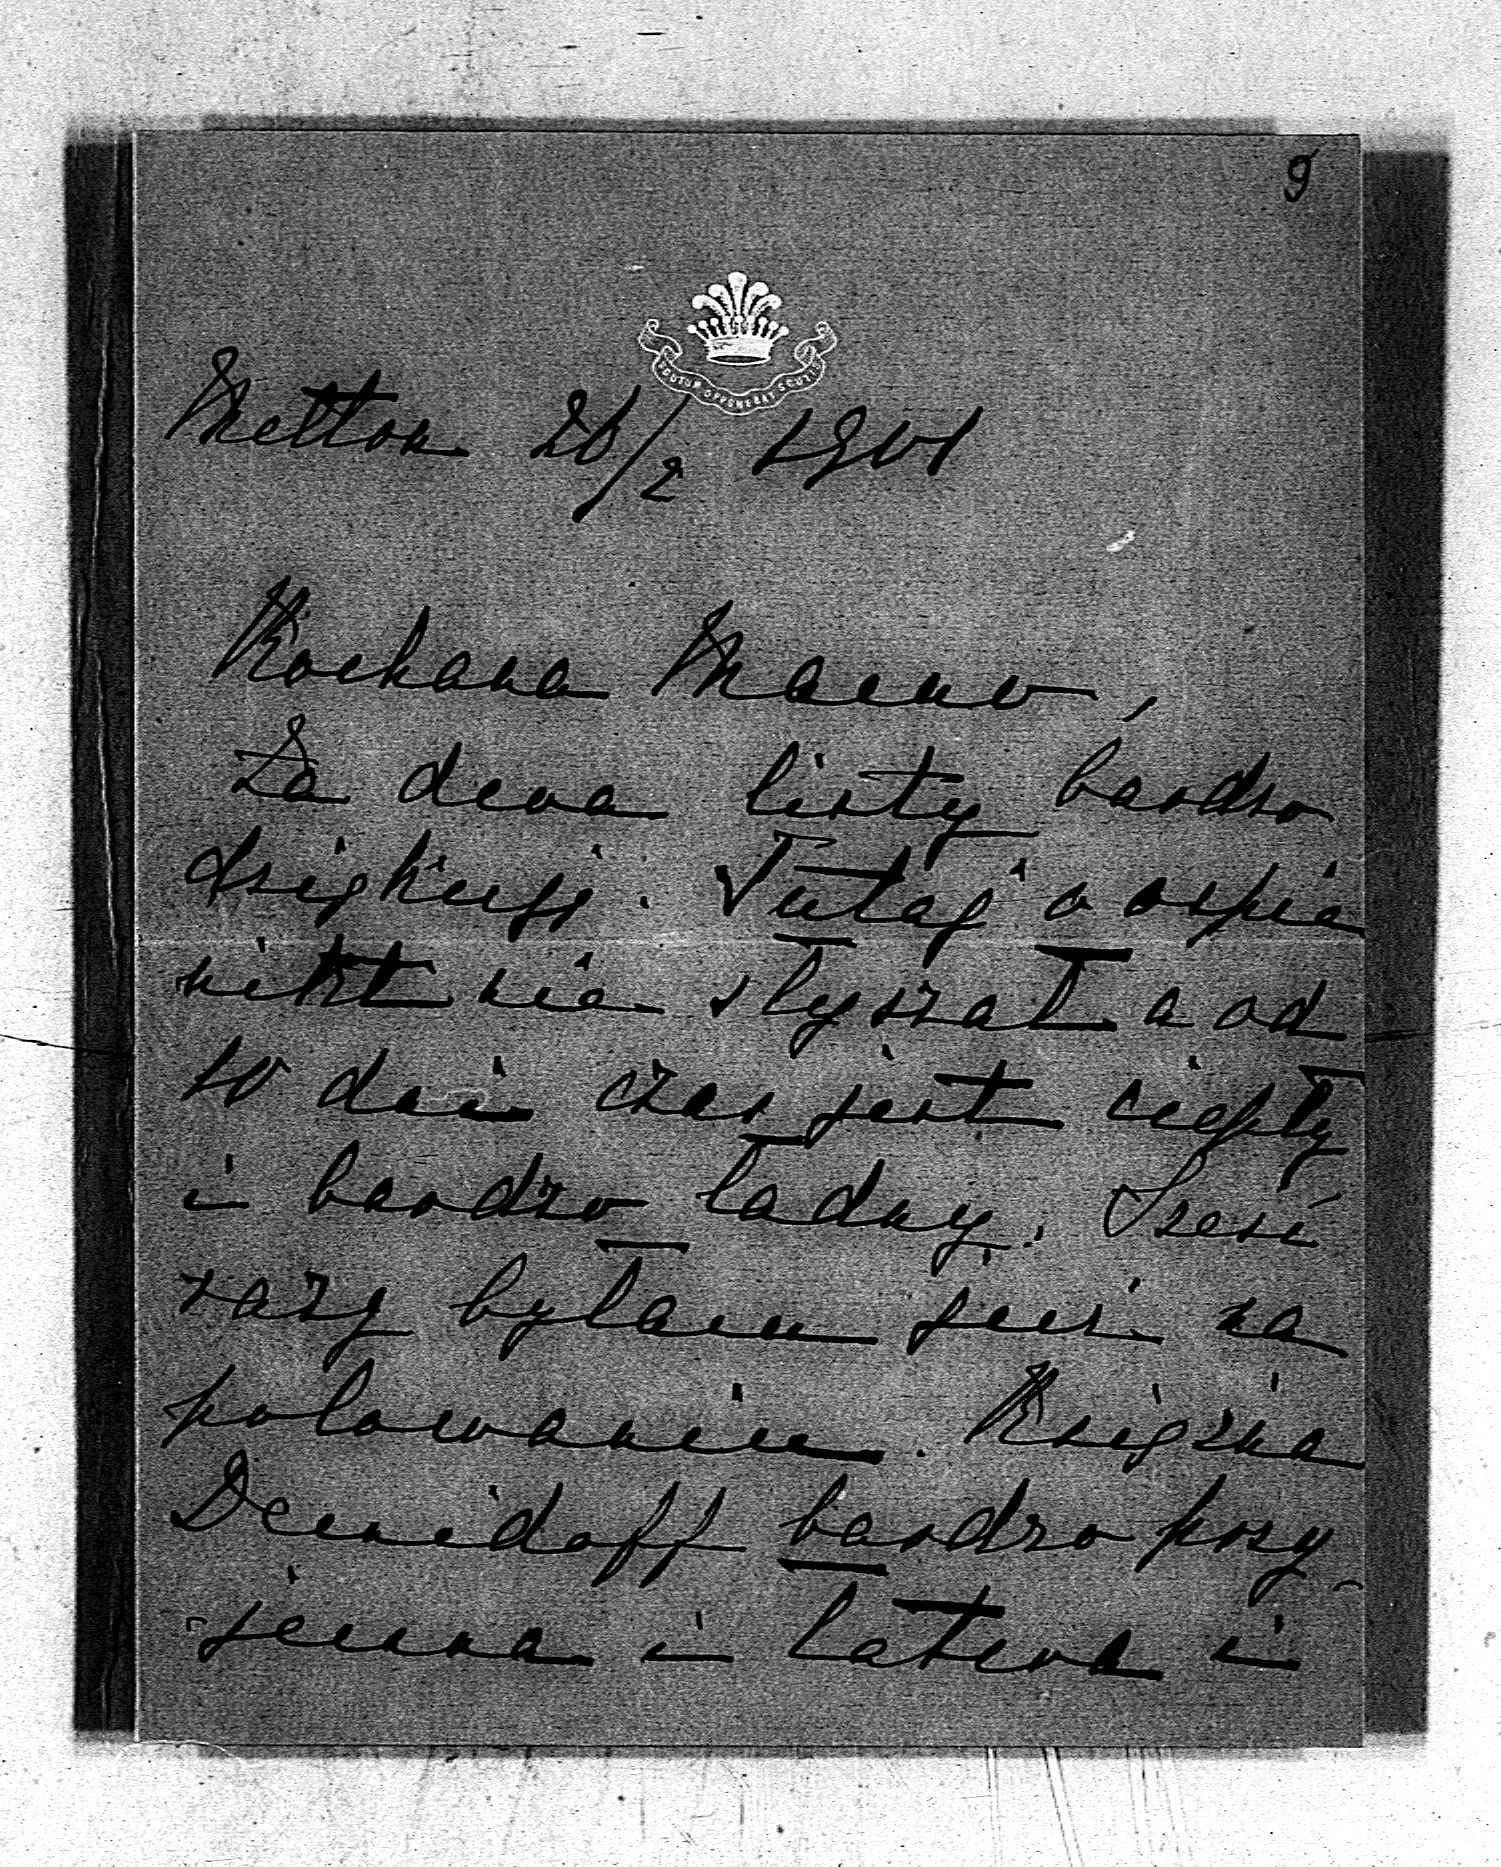 9
SCUTUM OPPONEBAT SCUTIS
Melton 26/2 1901
Kochana Mamo,
Za dwa listy bardzo
dziękuję. Tutaj o ospie
nikt nie słyszał a od
10 dni czas jest ciepły
i bardzo ładny. Sześć
razy byłam już na
polowaniu. Księżna
Demidoff bardzo przy-
jemna i łatwa i